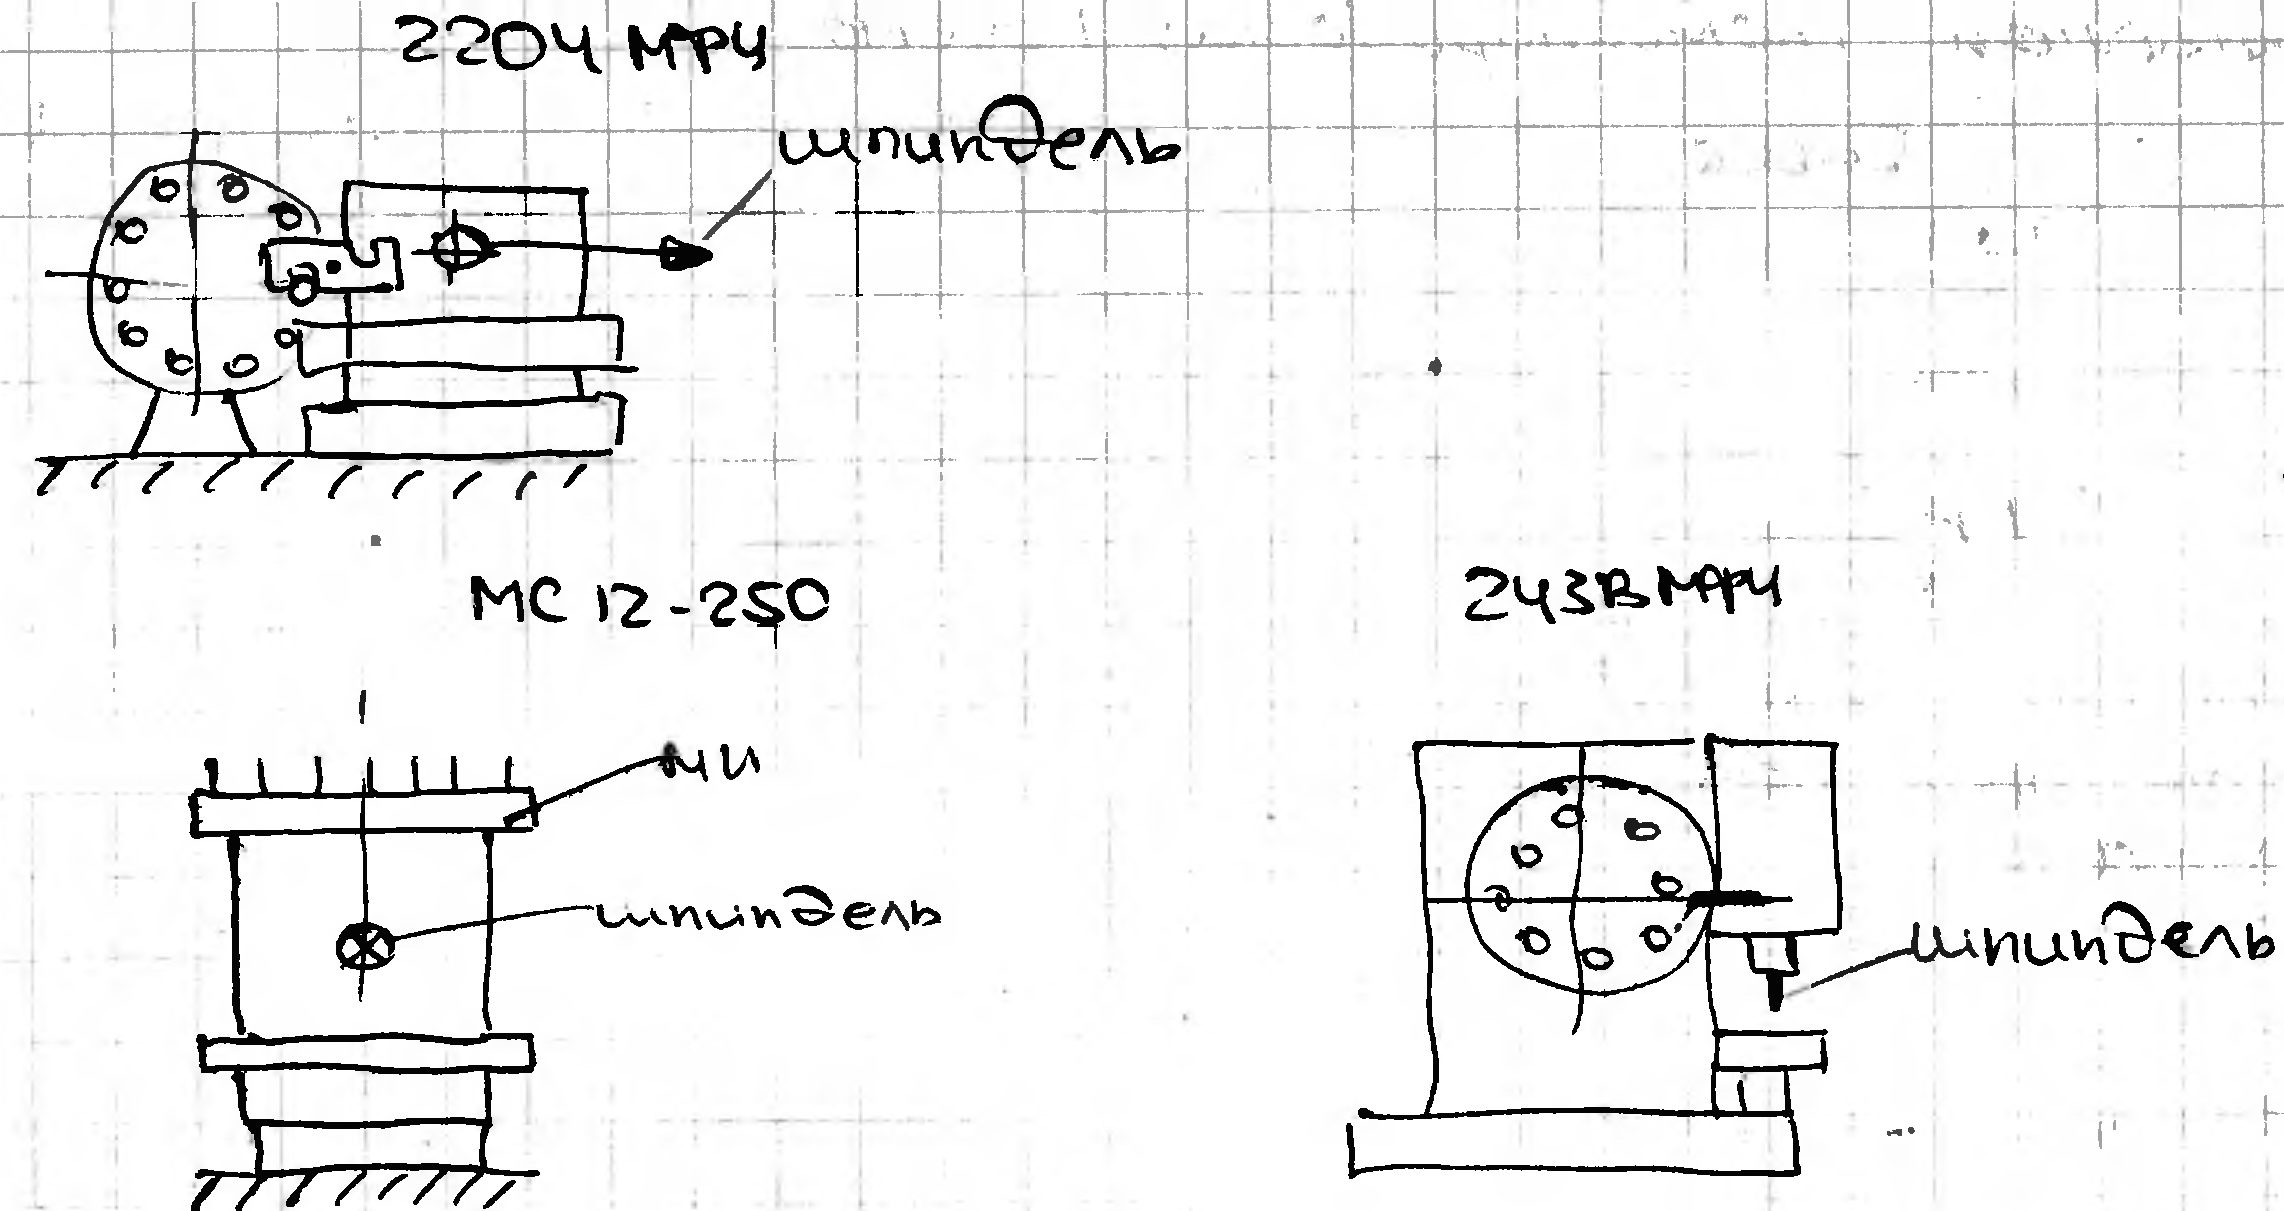 2204 МРЧ
шпиндель
МС 12-250
243ВМРЧ
МИ
шпиндель
шпиндель